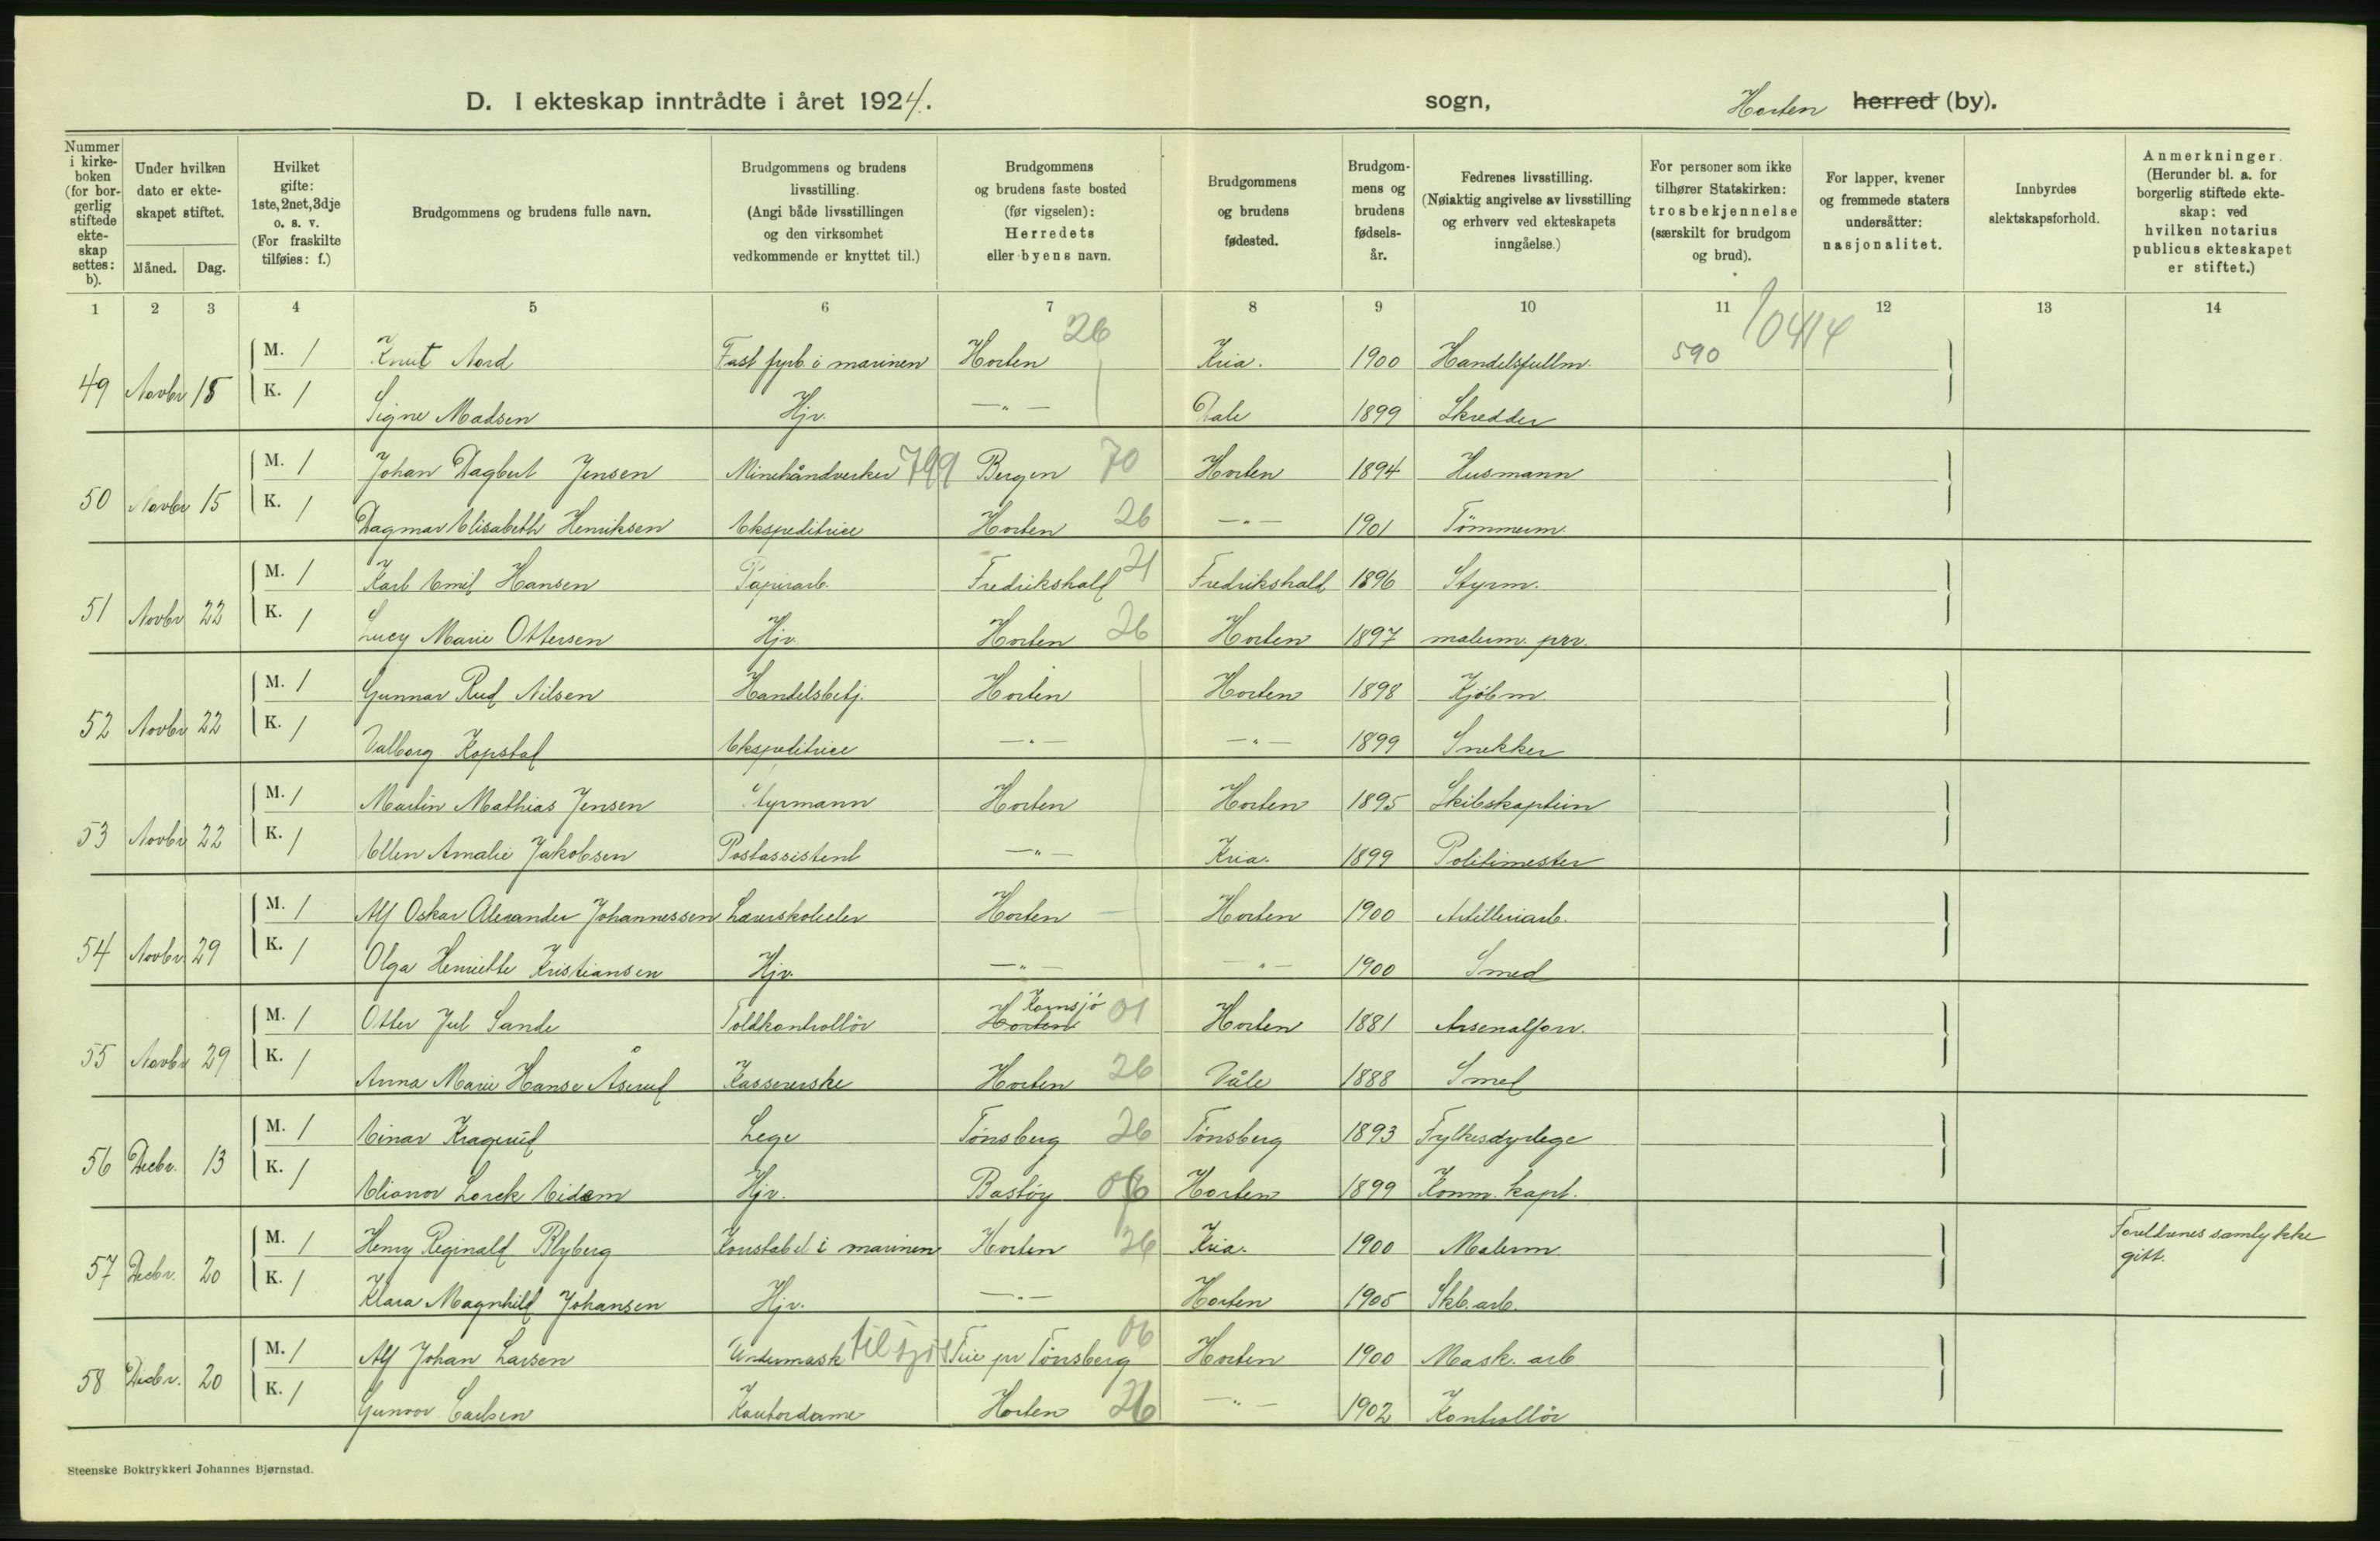 D. I ekteskap inntrådte i året 1924. sogn, Horten herred (by).
Nummer i kirkeboken (for borgerlig stiftede ekteskap settes: b).
Under hvilken dato er ekteskapet stiftet.
Måned. Dag.
Hvilket gifte: 1ste, 2net, 3dje o. s. v. (For fraskilte tilføies: f.)
Brudgommens og brudens fulle navn.
Brudgommens og brudens livsstilling. (Angi både livsstillingen og den virksomhet vedkommende er knyttet til.)
Brudgommens og brudens faste bosted (før vigselen): Herredets eller byens navn.
Brudgommens og brudens fødested.
Brudgommens og brudens fødselsår.
Fedrenes livsstilling. (Nøiaktig angivelse av livsstilling og erhverv ved ekteskapets inngåelse.)
For personer som ikke tilhører Statskirken: trosbekjennelse (særskilt for brudgom og brud).
For lapper, kvener og fremmede staters undersåtter: nasjonalitet.
Innbyrdes slektskapsforhold.
Anmerkninger. (Herunder bl. a. for borgerlig stiftede ekteskap: ved hvilken notarius publicus ekteskapet er stiftet.)
1 2 3 4 5 6 7 8 9 10 11 12 13 14
26 10414
M. 1 Knut Nord Fast fyrb. i marinen Horten Kria. 1900 Handelsfullm. 590
49 Novbr 15 K. 1 Signe Madsen Hjv. —"— Dale 1899 Skredder
M. 1 Johan Dagbert Jensen Minehåndverker 799 Bergen 70 Horten 1894 Husmann
50 Novbr 15 K. 1 Dagmar Elisabeth Henriksen Ekspeditrice Horten 26 —"— 1901 Tömmerm.
M. 1 Karl Emil Hansen Papirarb. Fredrikshald 21 Fredrikshald 1896 Styrm.
51 Novbr 22 K. 1 Lucy Marie Ottersen Hjv. Horten 26 Horten 1897 malerm.
M. 1 Gunnar Rud Nilsen Handelsbetj. Horten Horten 1898 Kjöbm.
52 Novbr 22 K. 1 Valborg Kopstad Ekspeditrice —"— —"— 1899 Snekker
M. 1 Martin Mathias Jensen Styrmann Horten Horten 1895 Skibskaptein
53 Novbr 22 K. 1 Ellen Amalie Jakobsen Postassistent —"— Kria. 1899 Politimester
M. 1 Alf Oskar Alexander Johannessen Lærerskoleelev Horten Horten 1900 Artilleriarb.
54 Novbr 29 K. 1 Olga Henriette Kristiansen Hjv. —"— —"— 1900 Smed
M. 1 Otter Jul Sande Toldkontrollör Horten Kornsjö 01 Horten 1881 Arsenalforv.
55 Novbr 29 K. 1 Anna Marie Hanse Åserud Kassererske Horten 26 Våle 1888 Smed
M. 1 Einar Kragerud Lege Tönsberg 26 Tönsberg 1893 Fylkesdyrlege
56 Decbr. 13 K. 1 Elianor Lorck Eidem Hjv. Bastöy 06 Horten 1899 Komm. kapt.
M. 1 Henry Reginald Blyberg Konstabel i marinen Horten 26 Kria. 1900 Malerm Foreldrenes samtykke
57 Decbr. 20 K. 1 Klara Magnhild Johansen Hjv. —"— Horten 1905 Skb. arb. gitt.
M. 1 Alf Johan Larsen Undermask til sjös Teie pr Tönsberg 06 Horten 1900 Mask. arb
58 Decbr. 20 K. 1 Gunvor Carlsen Kontordame Horten 26 —"— 1902 Kontrollör
Steenske Boktrykkeri Johannes Bjørnstad.